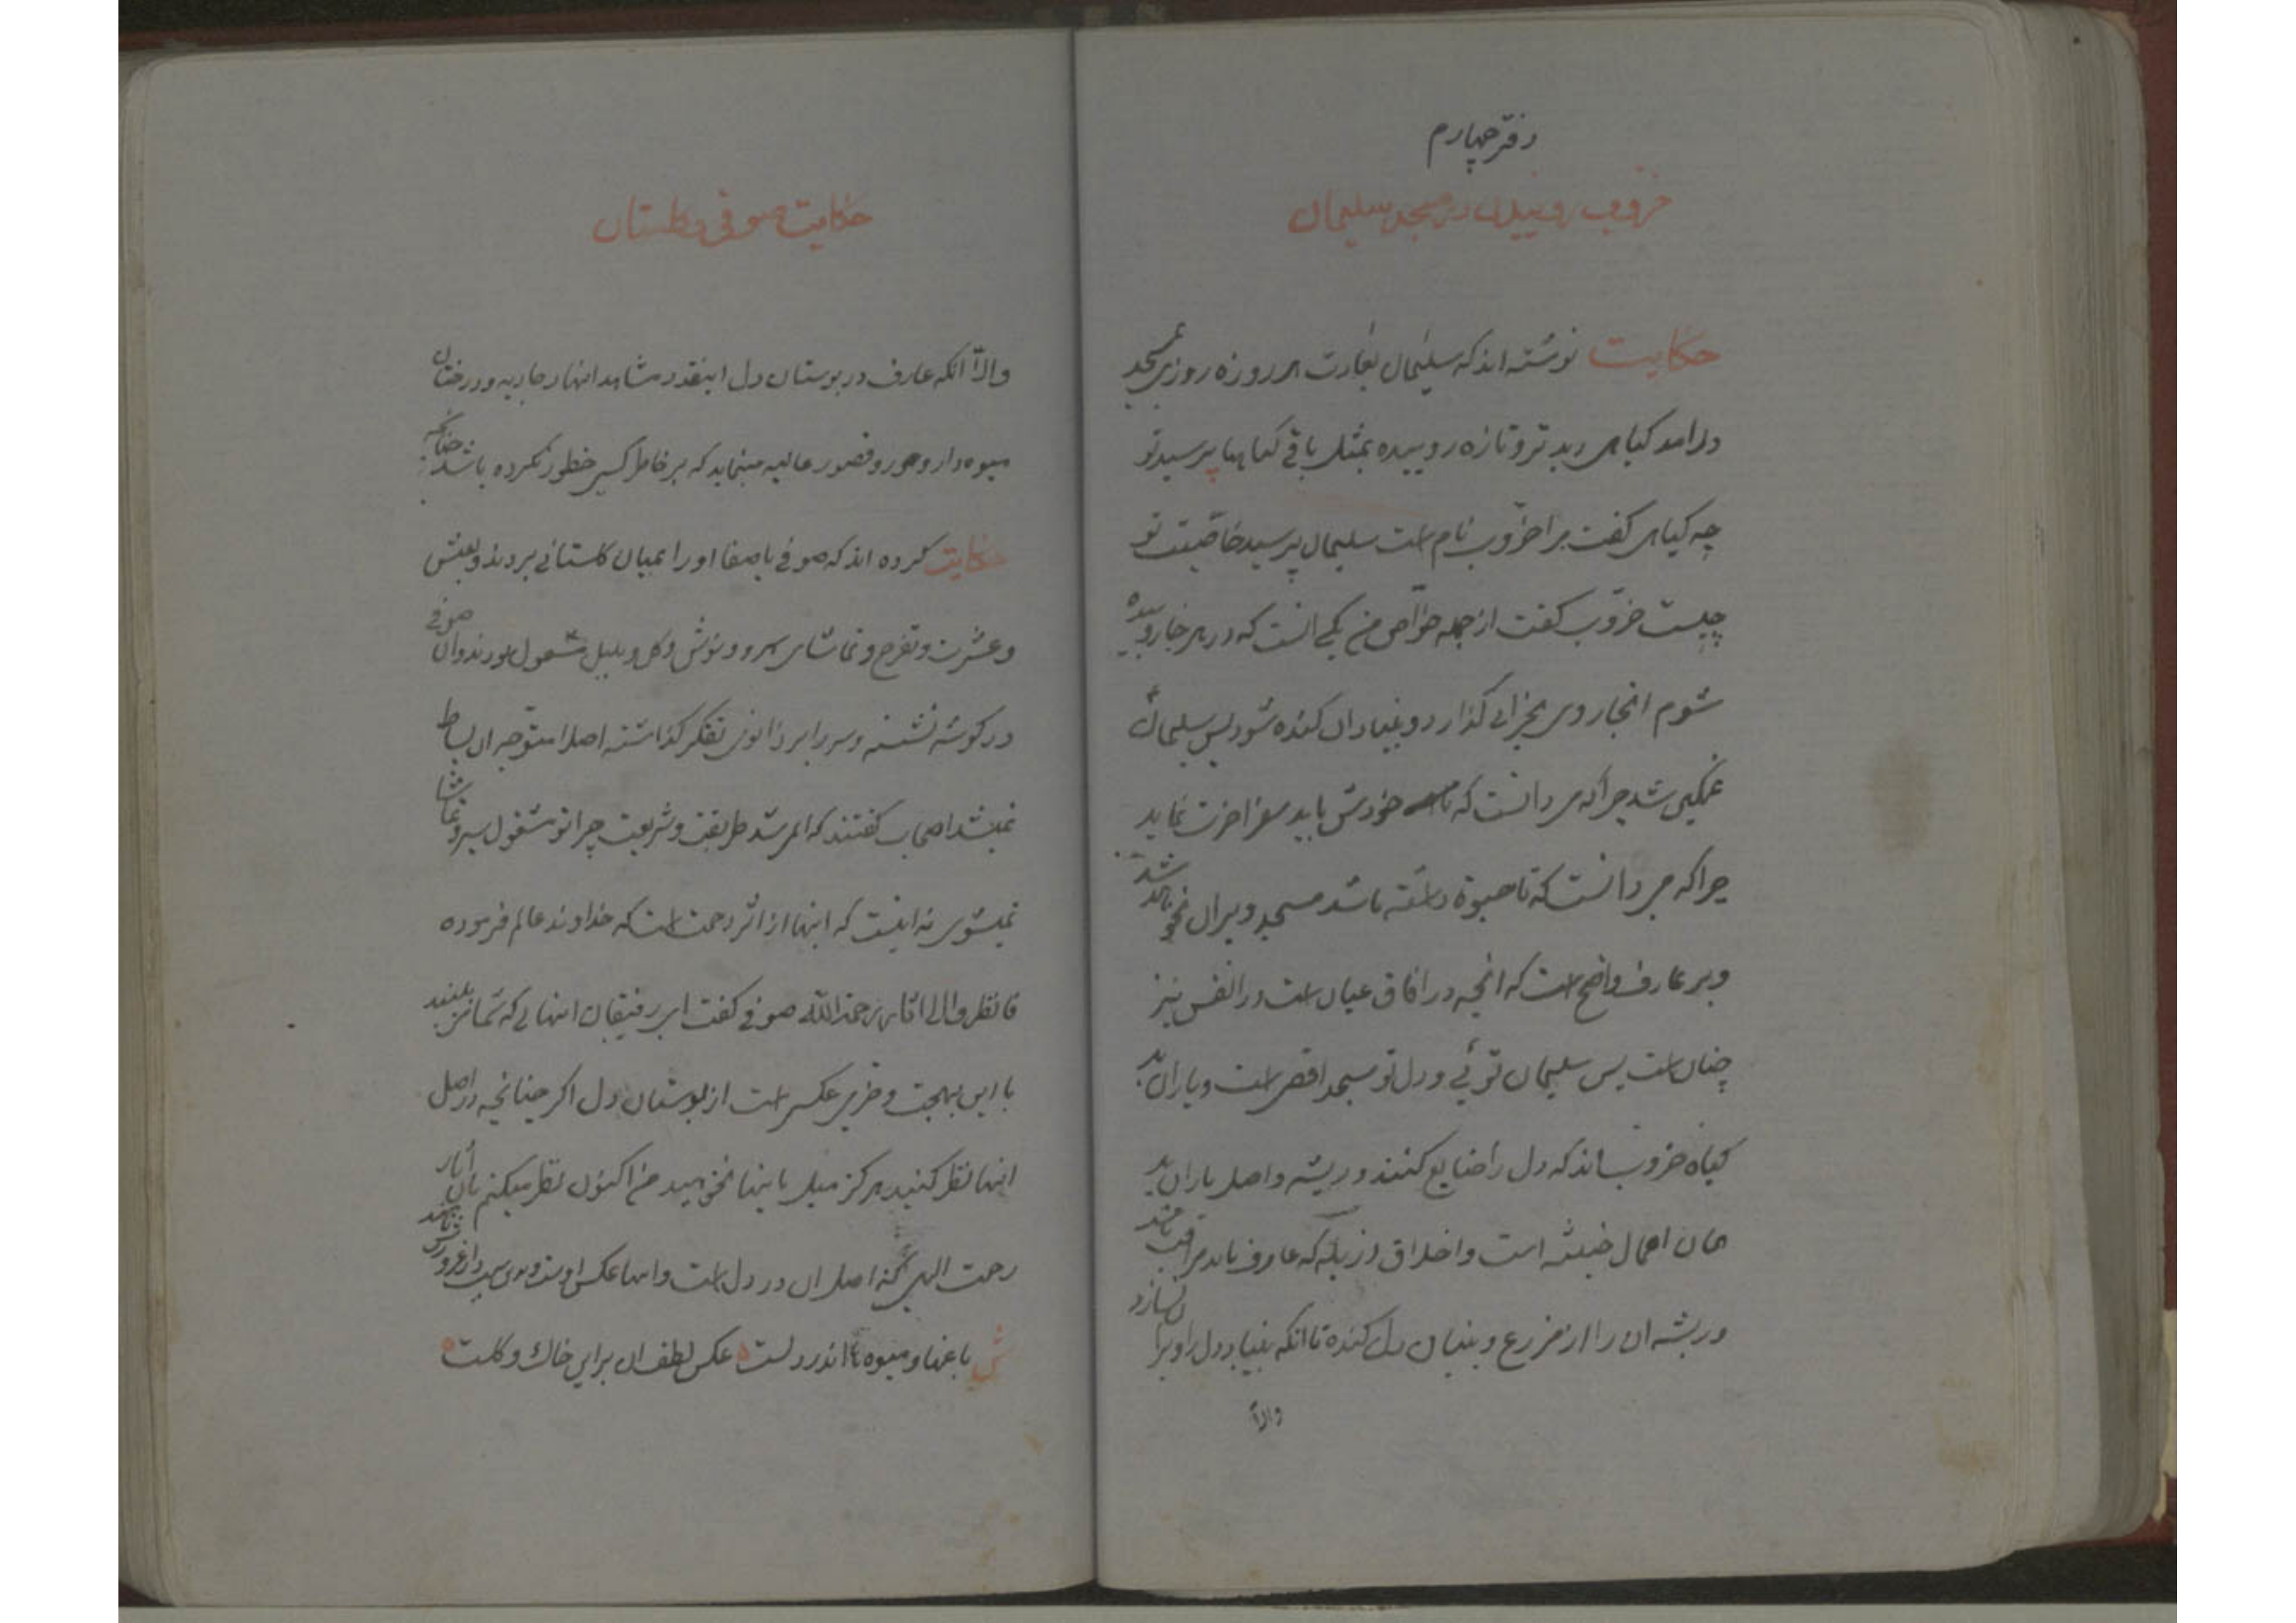 دفتر چهارم
خروب روییدن در مسجد سلیمان
حکایت نوشته اند که سلیمان بعادت هر روزه روزی بمسجد
درامد کیاهی دید تر و تازه روییده بمثل باقی کیاهها پرسید تو
چه کیاهی کفت مرا خرّوب نام است سلیمان پرسید خاصّیت تو
چیست خرّوب کفت از جمله خواّص من یکی انست که در هر جا روییده
شوم انجا روی بخرابی کذارد و بنیاد ان کنده شود پس سلیمان
غمکین شد چرا که می دانست که خودش باید سفر اخرت نماید
چرا که می دانست که تا حیوة داشته باشد مسجد ویران نخواهد شد
و بر عارف واضح است که انچه در افاق عیان است در انفس نیز
چنان است پس سلیمان توئی و دل تو مسجد اقصی است و یاران بد
کیاه خروب اند که دل را ضایع کنند و ریشه و اصل یاران بد
همان اعمال خبیثه است و اخلاق رزیله که عارف باید مراقب باشد
و ریشه ان را از مزرع و بنیان دل کنده تا انکه بنیاد دل را ویران نسازد
والاّ
حکایت صوفی و کلستان
والاّ انکه عارف در بوستان دل اینقدر مشاهد انهار جاریه و درختان
میوه دار و حور و قصور عالیه مینماید که بر خاطر کسی خطور نکرده باشد چنانکه
حکایت کرده اند که صوفی با صفا او را بمیان کلستانی بردند و بعیش
و عشرت و تفرج و تماشای سرو و نوش و کل و بلبل مشغول بودند و ان صوفی
در کوشه نشسته و سر را بر زانوی تفکر کذاشته اصلا متوّجه ان بساط
نمیشد اصحاب کفتند که ای مرشد طریقت و شریعت چرا تو مشغول سیر و تماشا
نمیشوی نه اینست که اینها از اثر رحمت است که خداوند عالم فرموده
فانظروا الی اثار رحمة اللّه صوفی کفت ای رفیقان اینهایی که شما می بینید
با این بهجت و خرمی عکسی است از بوستان دل اکر چنانچه در اصل
اینها نظر کنید هرکز میل باینها نخواهید من اکنون نظر میکنم بان اثار
رحمت الهی که اصل ان در دل است و اینها عکس اوست
ش باغها و میوه ها اندر دلست ه عکس لطف ان براین خاک و کلست ه